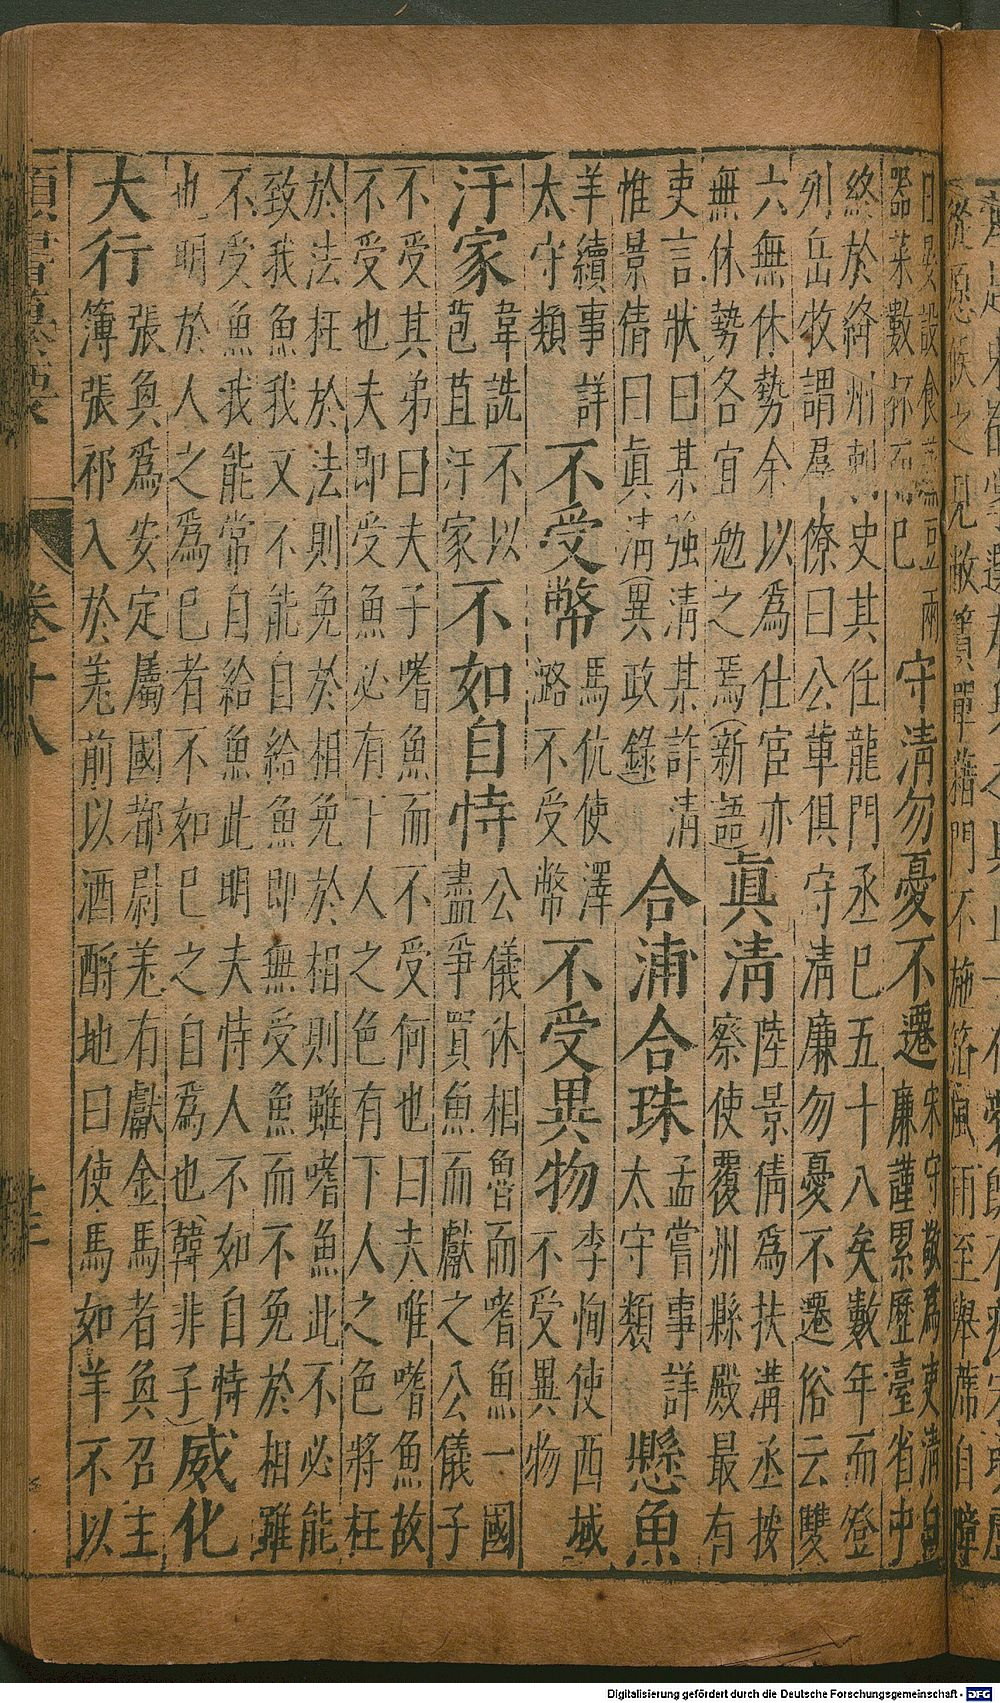 日晏設食蔬豆兩
器菜數杯而巳
守清勿憂不遷
宋守敬為吏清白
廉謹累歷臺省中
終於絳州刺史其任龍門丞巳五十八矣數年而登
列岳牧謂羣僚曰公軰俱守清廉勿憂不遷俗云雙
六無休勢余以為仕宦亦
無休勢各宜勉之焉(新語
眞清
陸景倩為扶溝丞按
察使覆州縣殿最有
吏言狀曰某強清某詐清
惟景倩曰眞清(異政錄
合浦合珠
孟嘗事詳
太守類
懸魚
羊續事詳
太守類
不受幣
馬伉使澤
潞不受幣
不受異物
李恂使西域
不受異物
汙家
韋詵不以
苞苴汙家
不如自恃
公儀休相魯而嗜魚一國
盡爭買魚而獻之公儀子
不受其弟曰夫子嗜魚而不受何也曰夫唯嗜魚故
不受也夫即受魚必有下人之色有下人之色將枉
於法枉於法則免於相免於相則雖嗜魚此不必能
致我魚我又不能自給魚即無受魚而不免於相雖
不受魚我能常自給魚此明夫恃人不如自恃
也明於人之為巳者不如巳之自為也(韓非子)
威化
大行
張奐為安定屬國都尉羌有獻金馬者奐召主
簿張祁入於羌前以酒酹地曰使馬如羊不以
類書纂要
卷十八
廿三
Digitalisierung gefördert durch die Deutsche Forschungsgemeinschaft - DFG